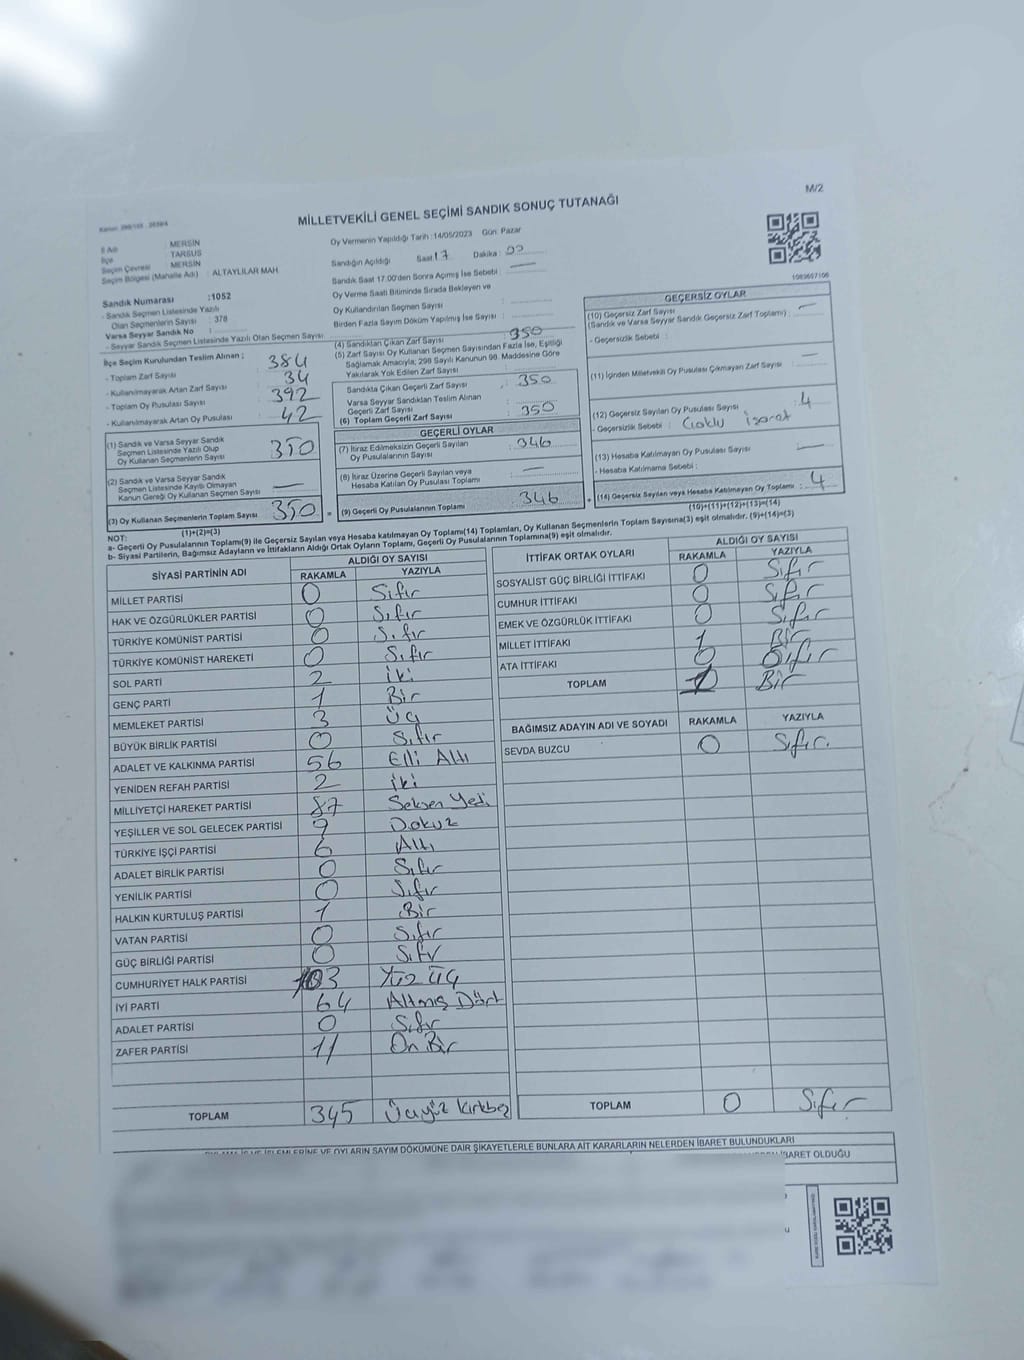 M/2
MİLLETVEKİLİ GENEL SEÇİMİ SANDIK SONUÇ TUTANAĞI
İl Adı : MERSİN
İlçe : TARSUS
Seçim Çevresi : MERSİN
Seçim Bölgesi (Mahalle Adı) : ALTAYLILAR MAH.
Oy Vermenin Yapıldığı Tarih :14/05/2023 Gün: Pazar
Sandığın Açıldığı Saat:17 Dakika : 00
Sandık Saat 17.00'den Sonra Açılmış İse Sebebi : —
Oy Verme Saati Bitiminde Sırada Bekleyen ve
Oy Kullandırılan Seçmen Sayısı :
Birden Fazla Sayım Döküm Yapılmış İse Sayısı :
Sandık Numarası :1052
- Sandık Seçmen Listesinde Yazılı
Olan Seçmenlerin Sayısı : 378
Varsa Seyyar Sandık No :
- Seyyar Sandık Seçmen Listesinde Yazılı Olan Seçmen Sayısı :
1083657106
İlçe Seçim Kurulundan Teslim Alınan ;
- Toplam Zarf Sayısı : 384
- Kullanılmayarak Artan Zarf Sayısı : 34
- Toplam Oy Pusulası Sayısı : 392
- Kullanılmayarak Artan Oy Pusulası : 42
(1) Sandık ve Varsa Seyyar Sandık
Seçmen Listesinde Yazılı Olup
Oy Kullanan Seçmenlerin Sayısı : 350
(2) Sandık ve Varsa Seyyar Sandık
Seçmen Listesinde Kayıtlı Olmayan
Kanun Gereği Oy Kullanan Seçmen Sayısı : —
(3) Oy Kullanan Seçmenlerin Toplam Sayısı : 350
(1)+(2)=(3)
(4) Sandıktan Çıkan Zarf Sayısı : 350
(5) Zarf Sayısı Oy Kullanan Seçmen Sayısından Fazla İse, Eşitliği
Sağlamak Amacıyla; 298 Sayılı Kanunun 98. Maddesine Göre
Yakılarak Yok Edilen Zarf Sayısı :
Sandıkta Çıkan Geçerli Zarf Sayısı : 350
Varsa Seyyar Sandıktan Teslim Alınan
Geçerli Zarf Sayısı :
(6) Toplam Geçerli Zarf Sayısı : 350
GEÇERLİ OYLAR
(7) İtiraz Edilmeksizin Geçerli Sayılan
Oy Pusulalarının Sayısı : 346
(8) İtiraz Üzerine Geçerli Sayılan veya
Hesaba Katılan Oy Pusulası Toplamı : —
= (9) Geçerli Oy Pusulalarının Toplamı : 346
GEÇERSİZ OYLAR
(10) Geçersiz Zarf Sayısı
(Sandık ve Varsa Seyyar Sandık Geçersiz Zarf Toplamı) : —
- Geçersizlik Sebebi :
(11) İçinden Milletvekili Oy Pusulası Çıkmayan Zarf Sayısı : —
(12) Geçersiz Sayılan Oy Pusulası Sayısı : 4
- Geçersizlik Sebebi : Çoklu İşaret
(13) Hesaba Katılmayan Oy Pusulası Sayısı : —
- Hesaba Katılmama Sebebi :
+ (14) Geçersiz Sayılan veya Hesaba Katılmayan Oy Toplamı : 4
(10)+(11)+(12)+(13)=(14)
NOT:
a- Geçerli Oy Pusulalarının Toplamı(9) ile Geçersiz Sayılan veya Hesaba katılmayan Oy Toplamı(14) Toplamları, Oy Kullanan Seçmenlerin Toplam Sayısına(3) eşit olmalıdır. (9)+(14)=(3)
b- Siyasi Partilerin, Bağımsız Adayların ve İttifakların Aldığı Ortak Oyların Toplamı, Geçerli Oy Pusulalarının Toplamına(9) eşit olmalıdır.
SİYASİ PARTİNİN ADI ALDIĞI OY SAYISI
RAKAMLA YAZIYLA
MİLLET PARTİSİ 0 Sıfır
HAK VE ÖZGÜRLÜKLER PARTİSİ 0 Sıfır
TÜRKİYE KOMÜNİST PARTİSİ 0 Sıfır
TÜRKİYE KOMÜNİST HAREKETİ 0 Sıfır
SOL PARTİ 2 İki
GENÇ PARTİ 1 Bir
MEMLEKET PARTİSİ 3 Üç
BÜYÜK BİRLİK PARTİSİ 0 Sıfır
ADALET VE KALKINMA PARTİSİ 56 Elli Altı
YENİDEN REFAH PARTİSİ 2 İki
MİLLİYETÇİ HAREKET PARTİSİ 87 Seksen Yedi
YEŞİLLER VE SOL GELECEK PARTİSİ 9 Dokuz
TÜRKİYE İŞÇİ PARTİSİ 6 Altı
ADALET BİRLİK PARTİSİ 0 Sıfır
YENİLİK PARTİSİ 0 Sıfır
HALKIN KURTULUŞ PARTİSİ 1 Bir
VATAN PARTİSİ 0 Sıfır
GÜÇ BİRLİĞİ PARTİSİ 0 Sıfır
CUMHURİYET HALK PARTİSİ 103 Yüz Üç
İYİ PARTİ 64 Altmış Dört
ADALET PARTİSİ 0 Sıfır
ZAFER PARTİSİ 11 On Bir
TOPLAM 345 Üçyüz Kırkbeş
İTTİFAK ORTAK OYLARI ALDIĞI OY SAYISI
RAKAMLA YAZIYLA
SOSYALİST GÜÇ BİRLİĞİ İTTİFAKI 0 Sıfır
CUMHUR İTTİFAKI 0 Sıfır
EMEK VE ÖZGÜRLÜK İTTİFAKI 0 Sıfır
MİLLET İTTİFAKI 1 Bir
ATA İTTİFAKI 0 Sıfır
TOPLAM 1 Bir
BAĞIMSIZ ADAYIN ADI VE SOYADI RAKAMLA YAZIYLA
SEVDA BUZCU 0 Sıfır.
TOPLAM 0 Sıfır
OYLARIN SAYIM DÖKÜMÜNE DAİR ŞİKAYETLERLE BUNLARA AİT KARARLARIN NELERDEN İBARET BULUNDUKLARI
İBARET OLDUĞU